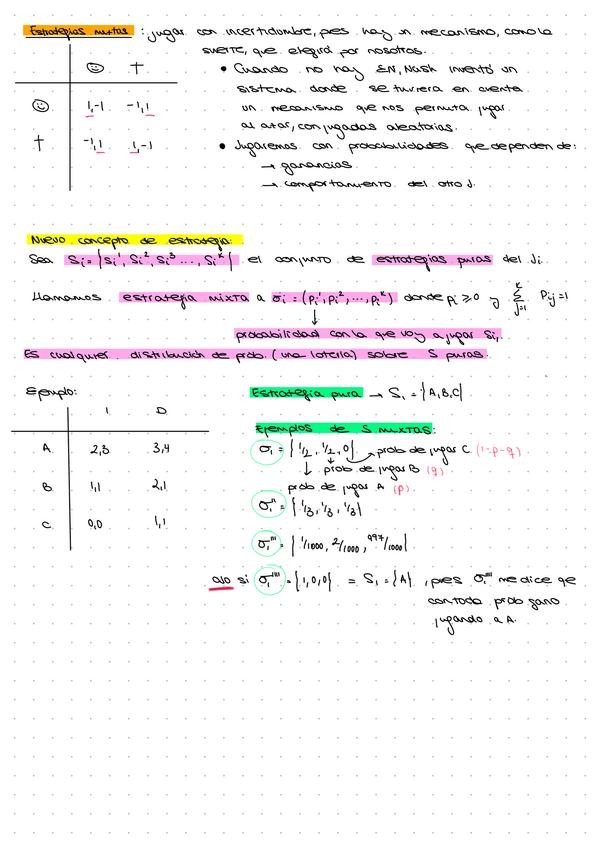 Estrategias mixtas : jugar con incertidumbre, pues hay un mecanismo, como la
suerte, que elegirá por nosotros.
☺ †
☺ 1,-1 -1,1
† -1,1 1,-1
• Cuando no hay EN, Nash inventó un
sistema donde se tuviera en cuenta
un mecanismo que nos permita jugar
al azar, con jugadas aleatorias.
• Jugaremos con probabilidades que dependen de:
→ ganancias
→ comportamiento del otro J.
Nuevo concepto de estrategia:
Sea Si = {Si¹, Si², Si³ ..., Siᴷ} el conjunto de estrategias puras del Ji.
Llamamos estrategia mixta a σi = (pi¹, pi², ..., piᴷ) donde pi ≥ 0 y Σ(j=1, K) Pij = 1
↓
probabilidad con la que voy a jugar Si,
Es cualquier distribución de prob. (una lotería) sobre S puras.
Ejemplo:
I D
A 2,3 3,4
B 1,1 2,1
C 0,0 1,1
Estrategia pura → S₁ = {A,B,C}
Ejemplos de S mixtas:
σ₁' = {1/2, 1/2, 0} → prob de jugar C (1-p-q)
↓ prob de jugar B (q)
prob de jugar A (p)
σ₁'' = {1/3, 1/3, 1/3}
σ₁''' = {1/1000, 2/1000, 997/1000}
ojo si σ₁'''' = {1,0,0} = S₁ = {A} , pues σ₁'''' me dice que
con toda prob gano
jugando a A.